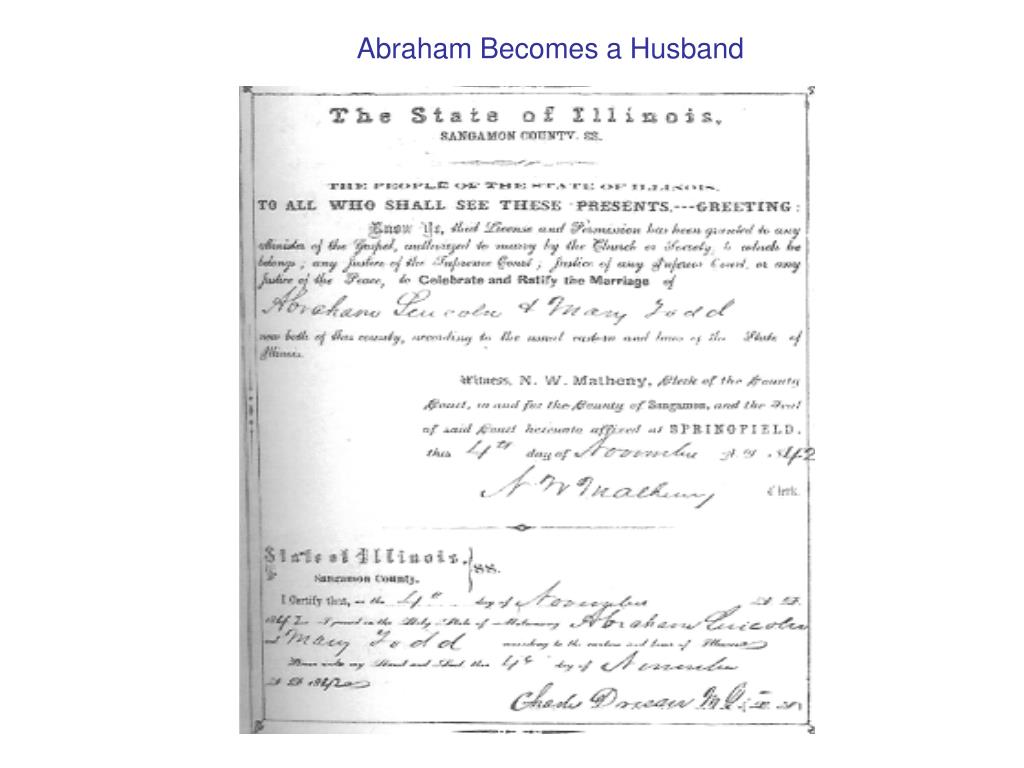 Abraham Becomes a Husband
The State of Illinois,
SANGAMON COUNTY. SS.
THE PEOPLE OF THE STATE OF ILLINOIS,
TO ALL WHO SHALL SEE THESE PRESENTS.---GREETING:
Know Ye, that License and Permission has been granted to any
Minister of the Gospel, authorized to marry by the Church or Society, to which he
belongs; any Justice of the Supreme Court; Justice of any Inferior Court, or any
Justice of the Peace, to Celebrate and Ratify the Marriage of
Abraham Lincoln & Mary Todd
now both of this county, according to the usual custom and laws of the State of
Illinois.
Witness, N. W. Matheny, Clerk of the County
Court, in and for the County of Sangamon, and the Seal
of said Court hereunto affixed at SPRINGFIELD,
this 4th day of November A. D. 1842
N W Matheny Clerk.
State of Illinois, } SS.
Sangamon County.
I Certify that, on the 4th day of November A. D.
1842 I joined in the Holy State of Matrimony Abraham Lincoln
and Mary Todd according to the custom and laws of Illinois
Given under my Hand and Seal this 4th day of November
A D 1842
Charles Dresser